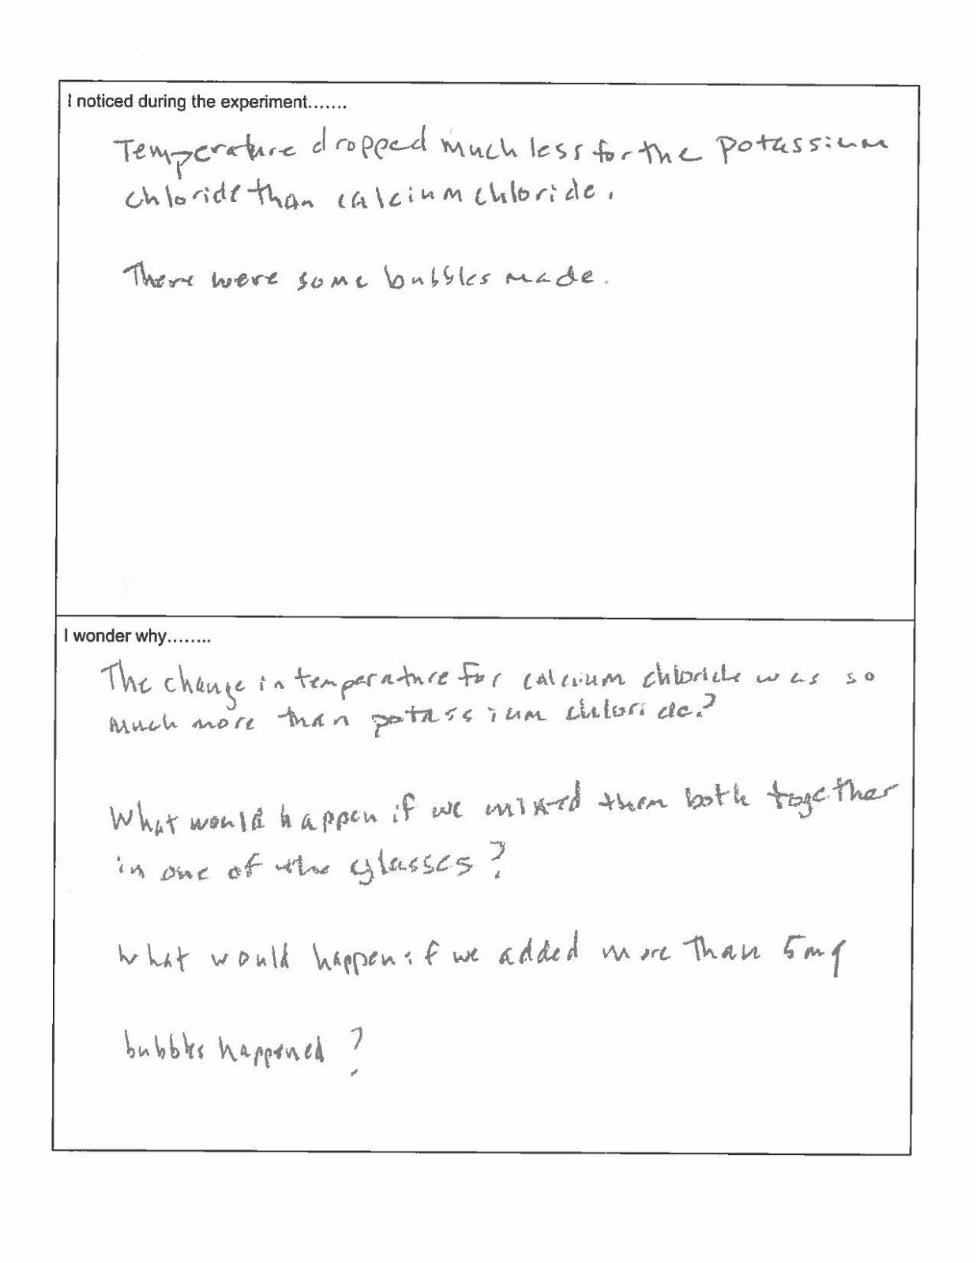 I noticed during the experiment.......
Temperature dropped much less for the potassium
chloride than calcium chloride.
There were some bubbles made.
I wonder why........
The change in temperature for calcium chloride was so
much more than potassium chloride?
What would happen if we mixed them both together
in one of the glasses?
What would happen if we added more than 5mg
bubbles happened?